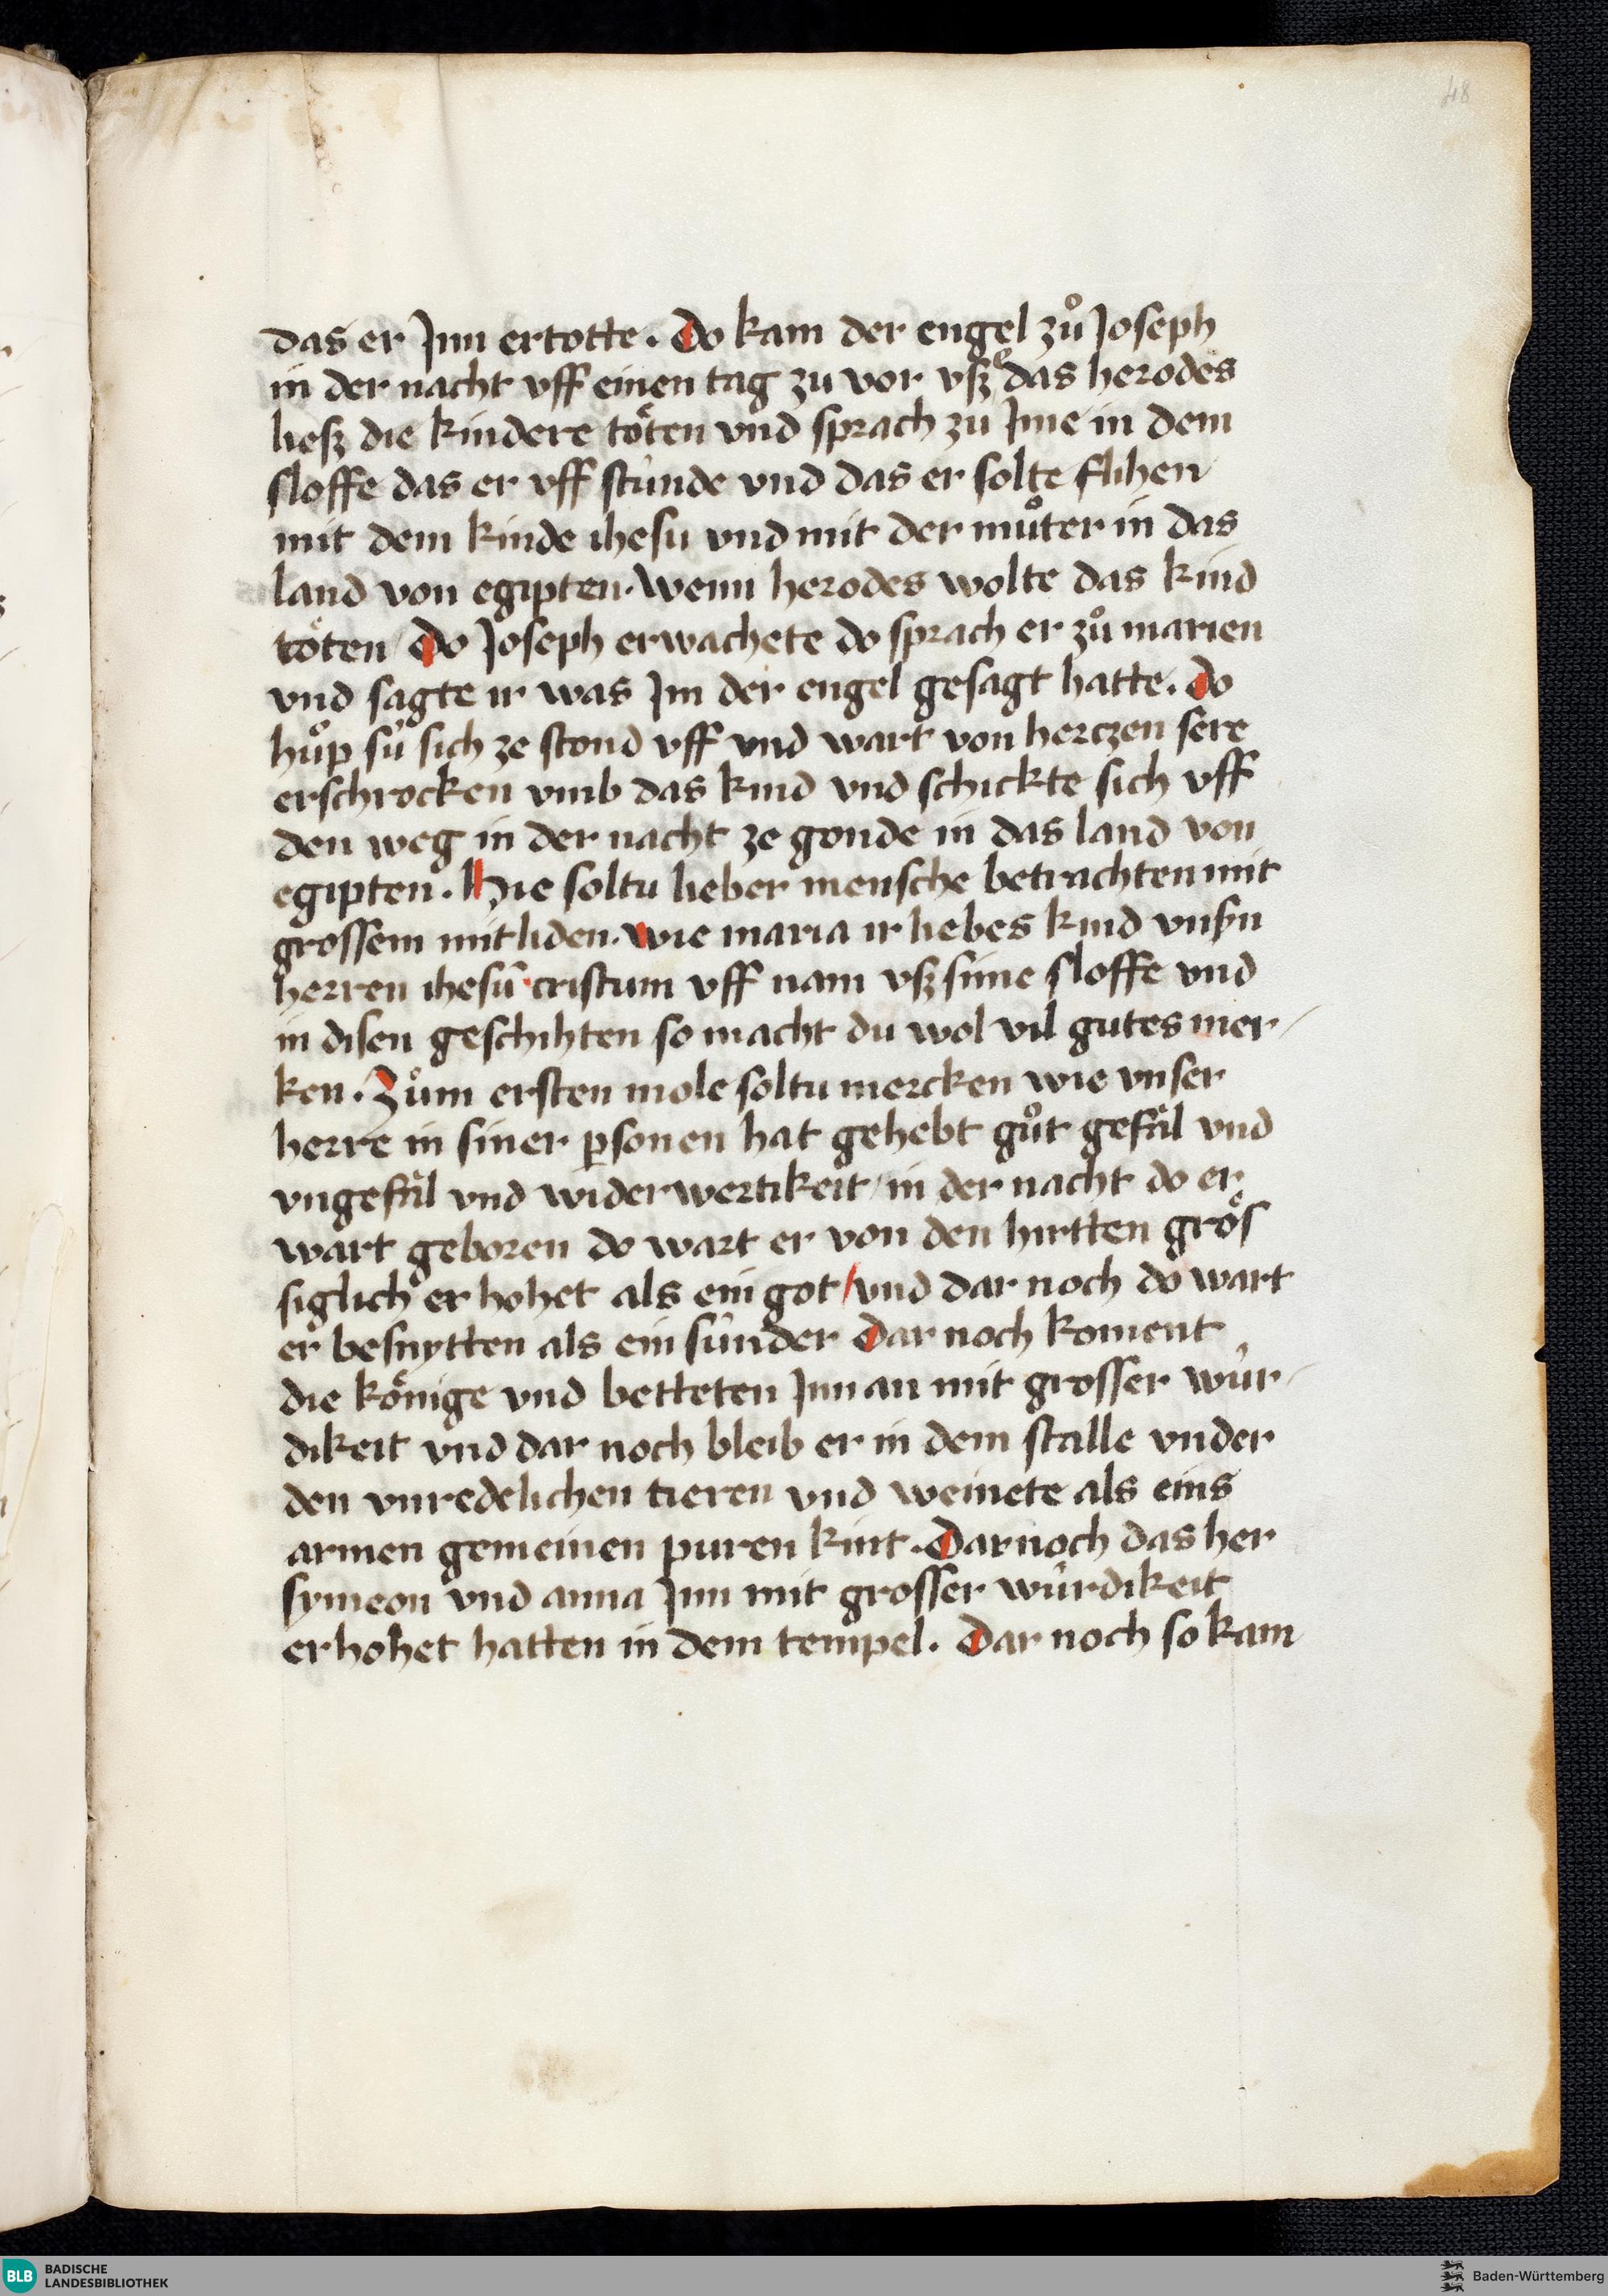 48
das er Jnn ertotte. Do kam der engel zuͦ Joseph
in der nacht vff einen tag zu vor vsz e das herodes
liesz die kindere toͤten vnd sprach zu Jme in dem
sloffe das er vff stúnde vnd das er solte flihen
mit dem kinde ihesu vnd mit der muͦter in das
land von egipten. Wenn herodes wolte das kind
toͤten / Do Joseph erwachete do sprach er zuͦ marien
vnd sagte ir was Jm der engel gesagt hatte. Do
huͦp sú sich ze stond vff vnd wart von herczen sere
erschrocken vmb das kind vnd schickte sich vff
den weg in der nacht ze gonde in das land von
egipten. Hie soltu lieber mensche betrachten mit
grossem mitliden. wie maria ir liebes kind vnsṅ
herren ihesū cristum vff nam vsz sime sloffe vnd
in disen geschihten so macht du wol vil gutes mer/
ken. Zuͦm ersten mole soltu mercken wie vnser
herre in siner ꝑsonen hat gehebt guͦt gefaͤl vnd
vngefaͤl vnd widerwertikeit / in der nacht do er
wart geboren do wart er von den hirtten groͤs
siglich er hohet als ein got / vnd dar noch do wart
er besnytten als ein súnder Dar noch koment
die koͤnige vnd betteten Jnn an mit grosser wúr/
dikeit vnd dar noch bleib er in dem stalle vnder
den vnredelichen tieren vnd weinete als eins
armen gemeinen puren kint. Dar noch das her
symeon vnd anna Jnn mit grosser wúrdikeit
erhohet hatten in dem tempel. Dar noch so kam
BLB BADISCHE
LANDESBIBLIOTHEK
Baden-Württemberg